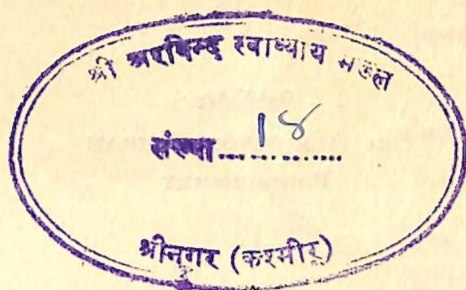 श्री अरविन्द स्वाध्याय मंडल
संख्या ... 18 ...
श्रीनगर (कश्मीर)